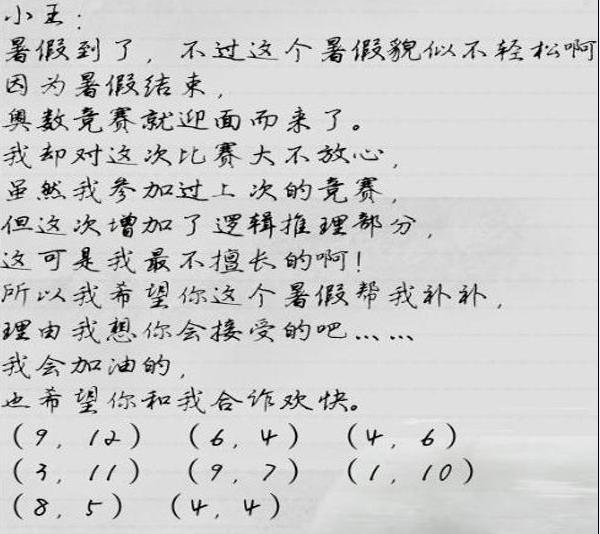 小王：
暑假到了，不过这个暑假貌似不轻松啊
因为暑假结束，
奥数竞赛就迎面而来了。
我却对这次比赛大不放心，
虽然我参加过上次的竞赛，
但这次增加了逻辑推理部分，
这可是我最不擅长的啊！
所以我希望你这个暑假帮我补补，
理由我想你会接受的吧……
我会加油的，
也希望你和我合作欢快。
（9，12） （6，4） （4，6）
（3，11） （9，7） （1，10）
（8，5） （4，4）